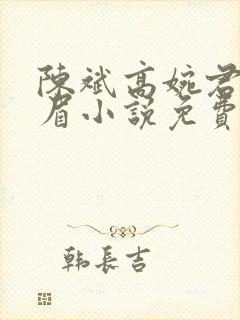 陳斌高婉君
眉小説免費
韩長吉